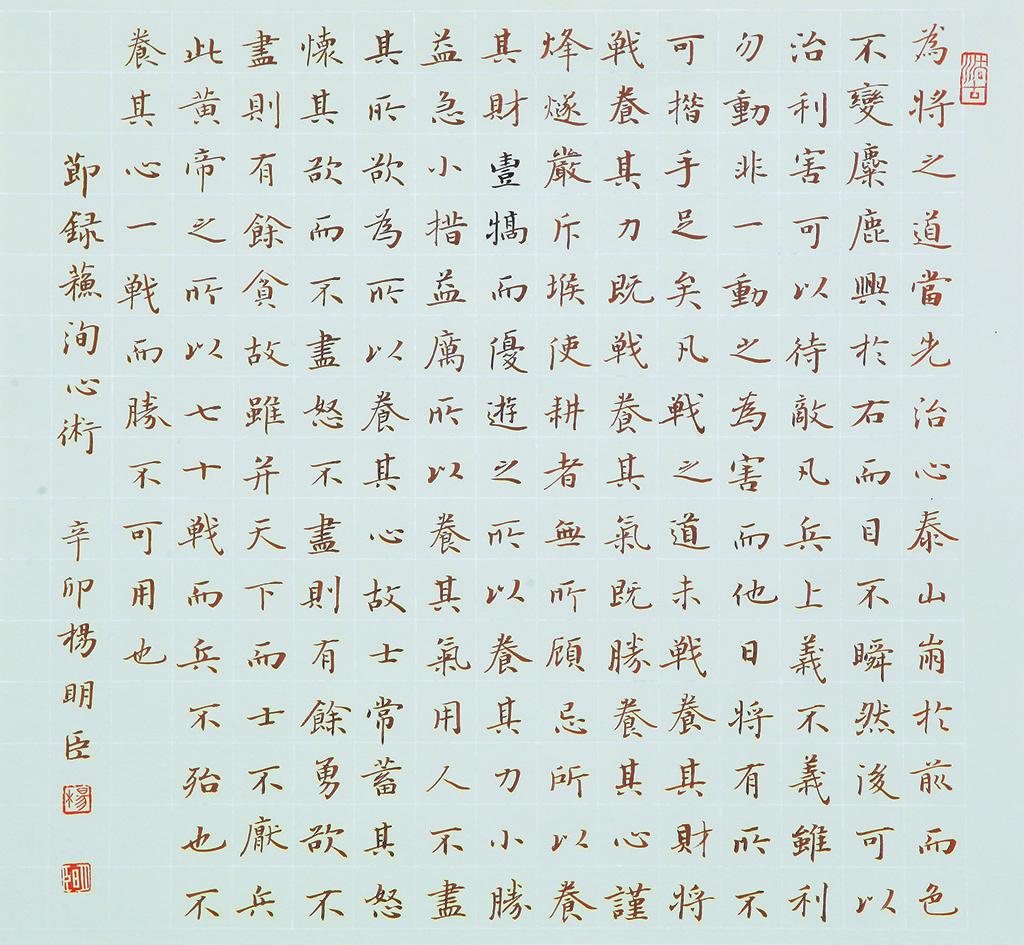 為將之道當先治心泰山崩於前而色
不變麋鹿興於右而目不瞬然後可以
治利害可以待敵凡兵上義不義雖利
勿動非一動之為害而他日將有所不
可措手足矣凡戦之道未戦養其財將
戦養其力既戦養其氣既勝養其心謹
烽燧嚴斥堠使耕者無所顧忌所以養
其財壹犒而優遊之所以養其力小勝
益急小措益厲所以養其氣用人不盡
其所欲為所以養其心故士常蓄其怒
懷其欲而不盡怒不盡則有餘勇欲不
盡則有餘貪故雖并天下而士不厭兵
此黃帝之所以七十戦而兵不殆也不
養其心一戦而勝不可用也
節録蘓洵心術 辛卯楊明臣
楊